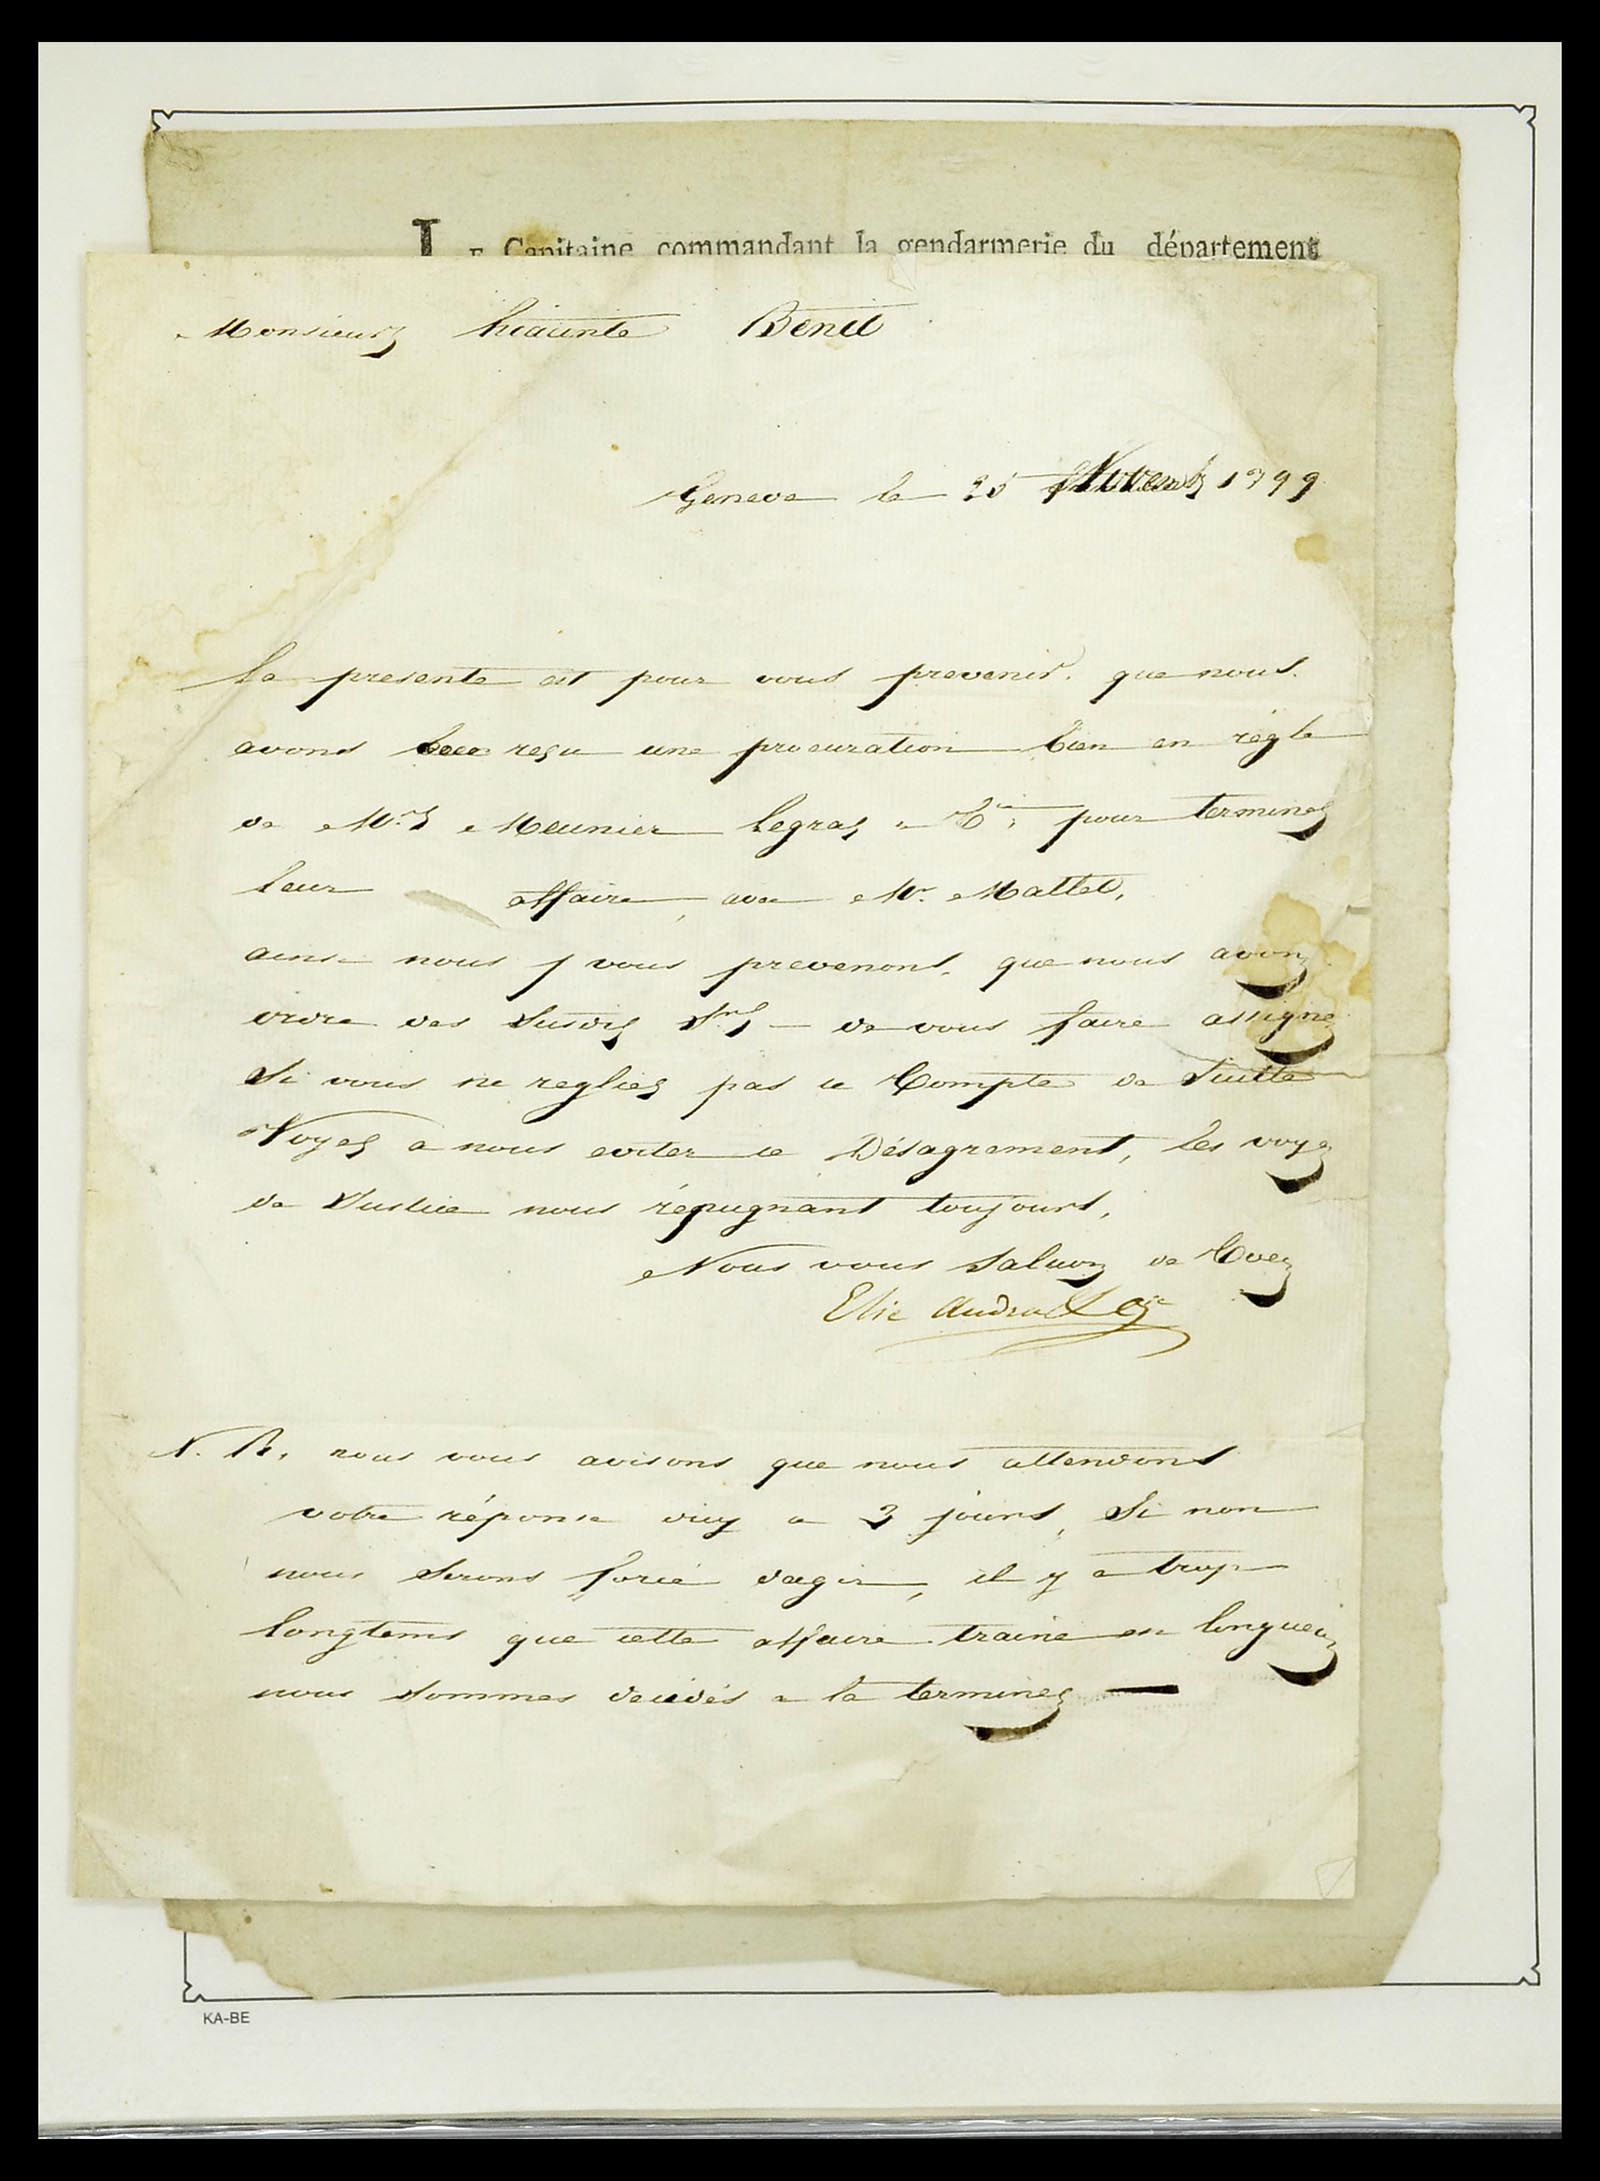 LE Capitaine commandant la gendarmerie du département
Monsieur hiacinte Benit
Geneve le 25 Novemb 1799
la presente est pour vous prevenir. que nous
avons reçu une procuration bien en régle
de Mrs Meunier legras & Cie pour terminer
leur affaire, avec Mr. Mallet,
ainsi nous vous prevenons, que nous avons
ordre des Susdis Srs — de vous faire assigner
Si vous ne regliez pas ce Compte de Suitte
Voyez a nous eviter ce Désagrement, les voyes
de Justice nous répugnant toujours,
Nous vous Saluons de
Elie Audra & Cie
N. B. nous vous avisons que nous attendons
votre réponse dicy a 3 jours, Si non
nous Serons forcé dagir, il y a trop
longtems que cette affaire traine en longueur
nous Sommes decidés a la terminer —
KA-BE